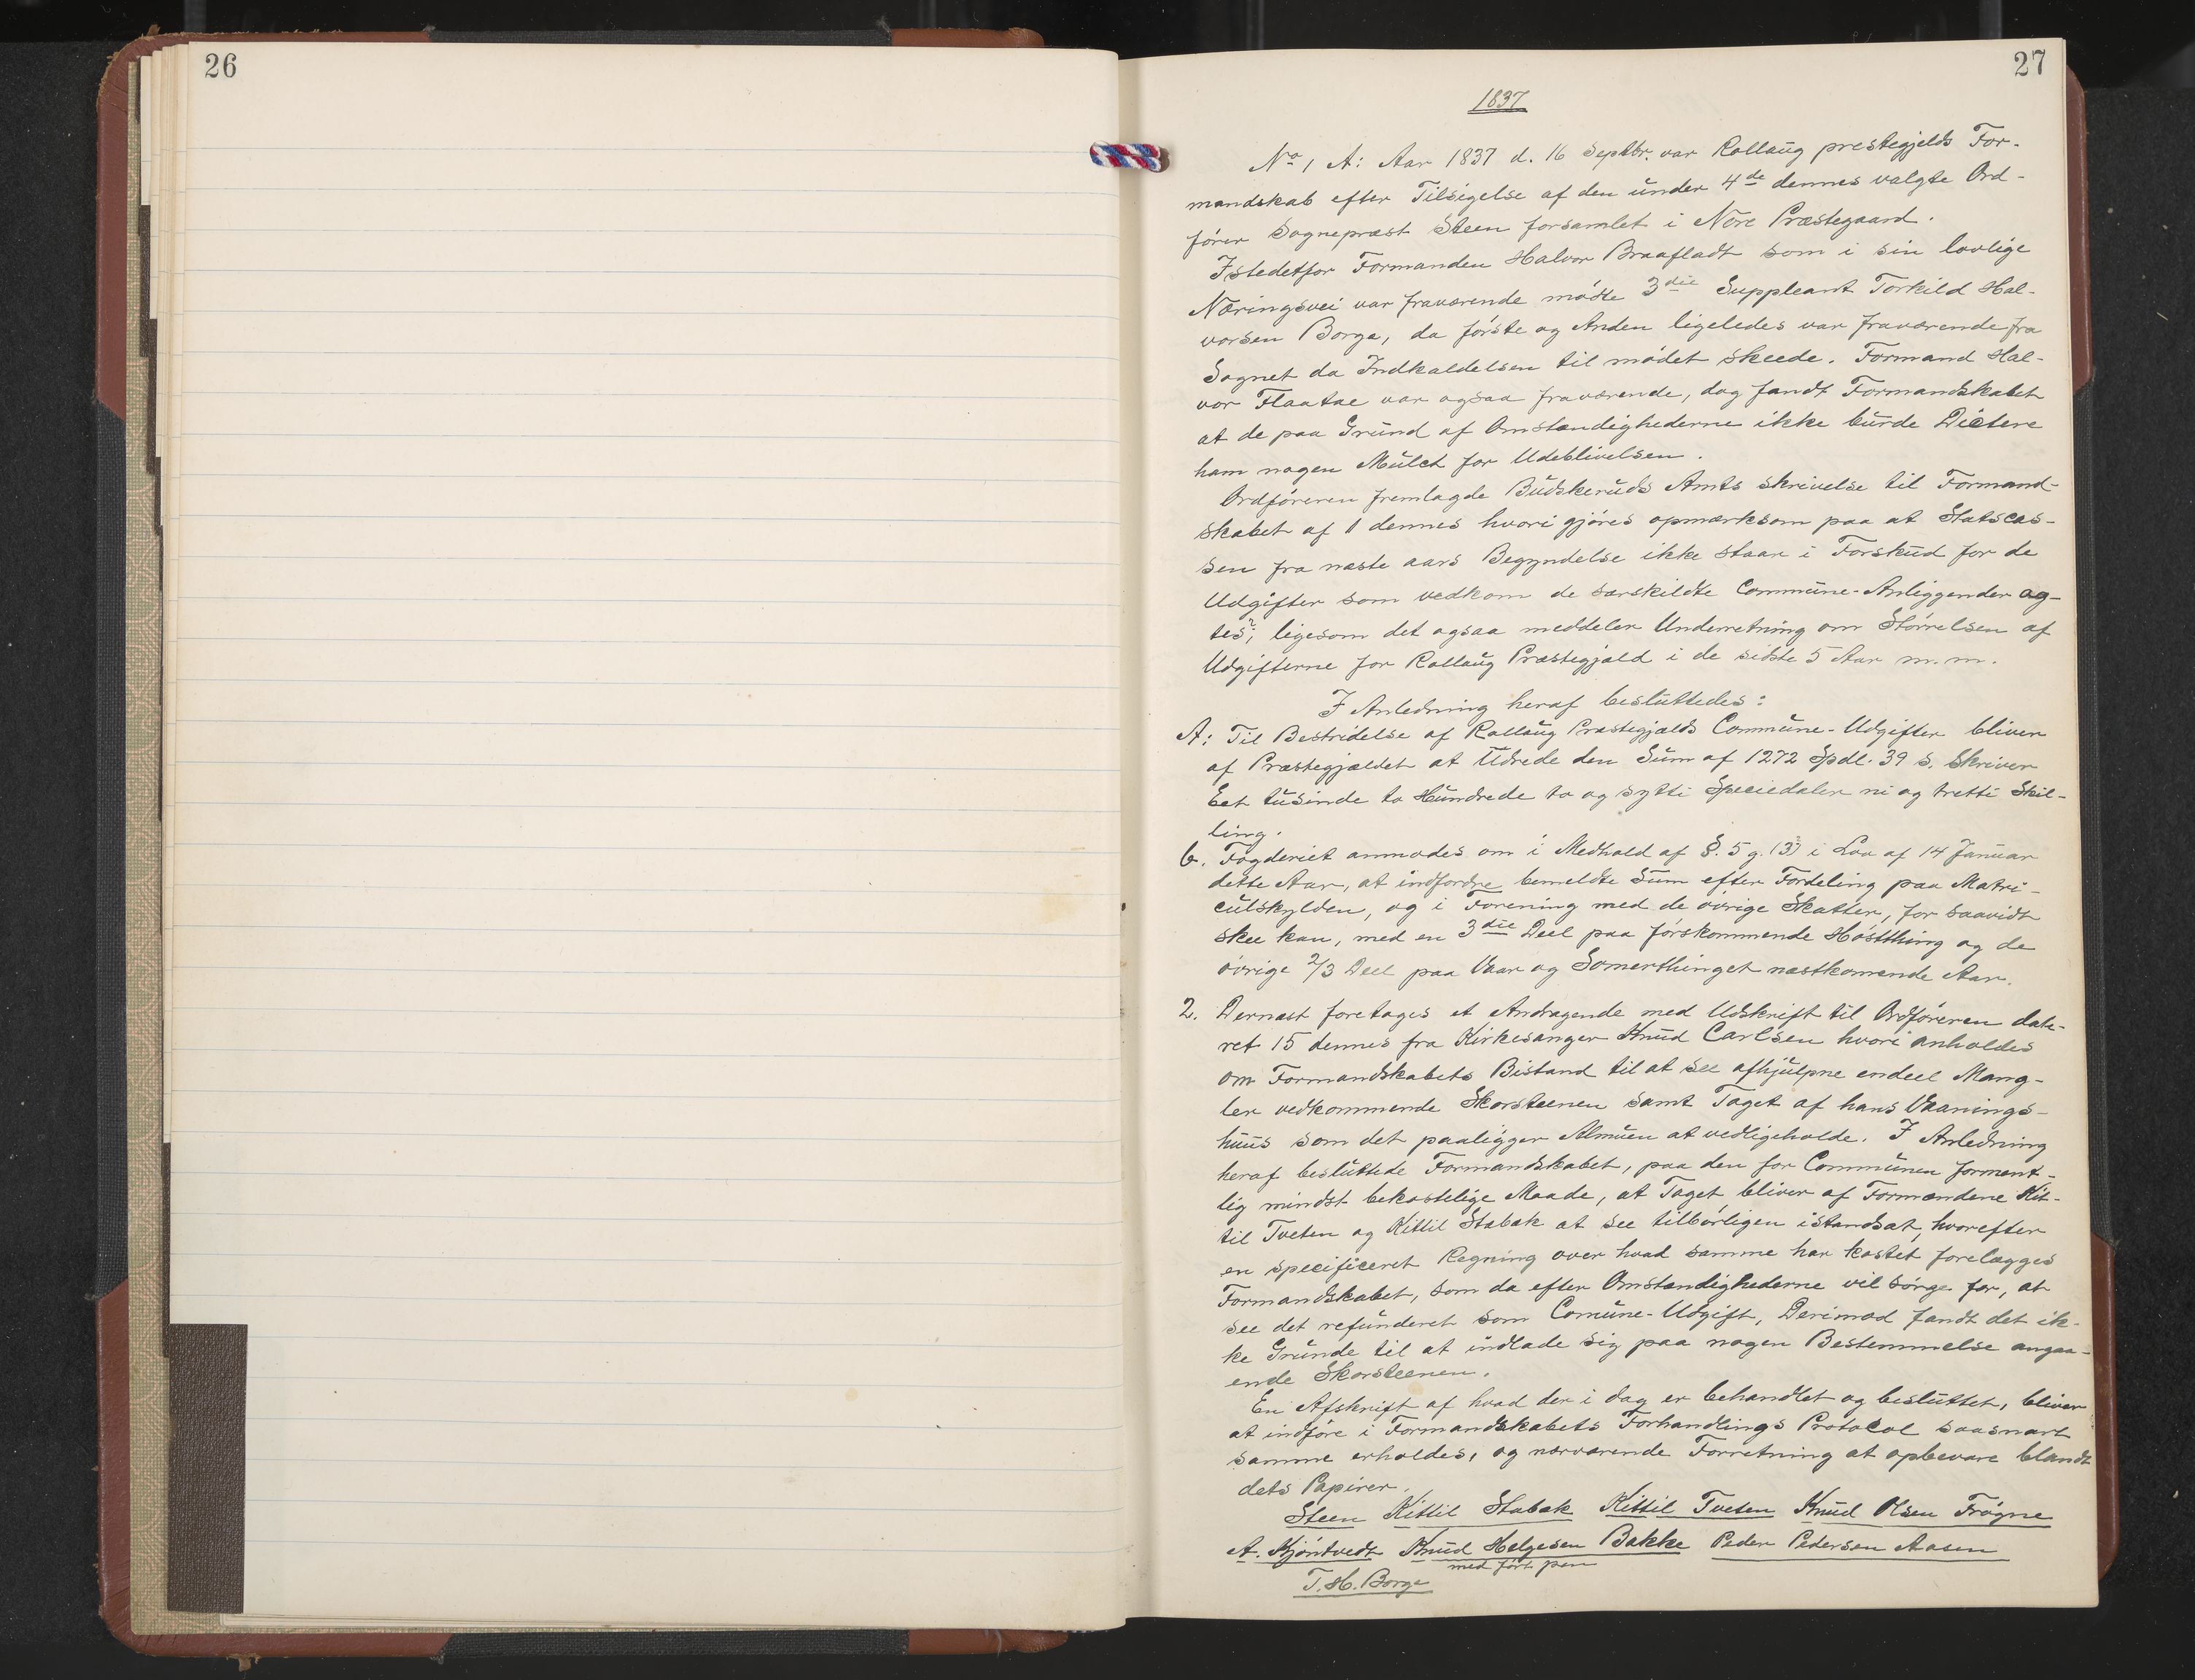 26
27
1837
No 1 A: Aar 1837 d. 16 Septbr. var Rollaug prestegjelds For-
mandskab efter Tilsigelse af den under 4de dennes valgte Ord-
fører Sognepræst Steen forsamlet i Nore Præstegaard.
Istedetfor Formanden Halvor Braafladt som i sin lovlige
Næringsvei var fraværende mødte 3die Suppleant Torkild Hal-
vorsen Borge, da første og Anden ligeledes var fraværende fra
Sognet da Indkaldelsen til mødet skeede. Formand Hal-
vor Flaatae var ogsaa fraværende, dog fandt Formandskabet
at de paa Grund af Omstændighederne ikke burde Dictere
ham nogen Mulct for Udeblivelsen.
Ordføreren fremlagde Budskeruds Amts skrivelse til Formand-
skabet af 1 dennes hvori gjøres opmærksom paa at Statscas-
sen fra næste aars Begyndelse ikke staar i Forskud for de
Udgifter som vedkom de særskildte Commune-Anliggender ag-
tes?; ligesom det ogsaa meddeler Underretning om Størrelsen af
Udgifterne for Rollaug Præstegjæld i de sidste 5 Aar m.m.
I Anledning heraf besluttedes:
A: Til Bestridelse af Rollaug Præstegjælds Commune-Udgifter bliver
af Præstegjældet at Udrede den Sum af 1272 Spdl. 39 s. Skriver
Eet tusinde to Hundrede to og sytti Speciedaler ni og tretti Skil-
ling.
b. Fogderiet anmodes om i Medhold af §. 5 g. (3) i Lov af 14 Januar
dette Aar, at indfordre bemeldte Sum efter Fordeling paa Matri-
culskylden, og i Forening med de øvrige Skatter, for saavidt
skee kan, med en 3die Deel paa førskommende Høstthing og de
øvrige 2/3 Deel paa Vaar og Somerthinget næstkomende Aar.
2. Dernæst foretages et Andragende med Udskrift til Ordføreren date-
ret 15 dennes fra Kirkesanger Knud Carlsen hvori anholdes
om Formandskabets Bistand til at see afhjulpne endeel Mang-
ler vedkommende Skorsteenen samt Taget af hans Vaanings-
huus som det paaligger Almuen at vedligeholde. I Anledning
heraf besluttede Formandskabet, paa den for Communen forment-
lig mindst bekostelige Maade, at Taget bliver af Formændene Kit-
til Tveten og Kittil Stabæk at see tilbørligen istandsat, hvorefter
en specificeret Regning over hvad samme har kostet forelægges
Formandskabet, som da efter Omstændighederne vil sørge for, at
see det refunderet som Comune-Udgift, Derimod fandt det ik-
ke Grunde til at indlade sig paa nogen Bestemmelse angaa-
ende Skorsteenen.
En Afskrift af hvad der i dag er behandlet og besluttet, bliver
at indføre i Formandskabets Forhandlings Protocol saasnart
samme erholdes, og nærværende Forretning at opbevare blandt
dets Papirer.
Steen Kittil Stabæk Kittil Tveten Knud Olsen Frøgne
A. Kjøntvedt Knud Helgesen Bakke Peder Pedersen Aasen
med ført pen
T. H. Borge